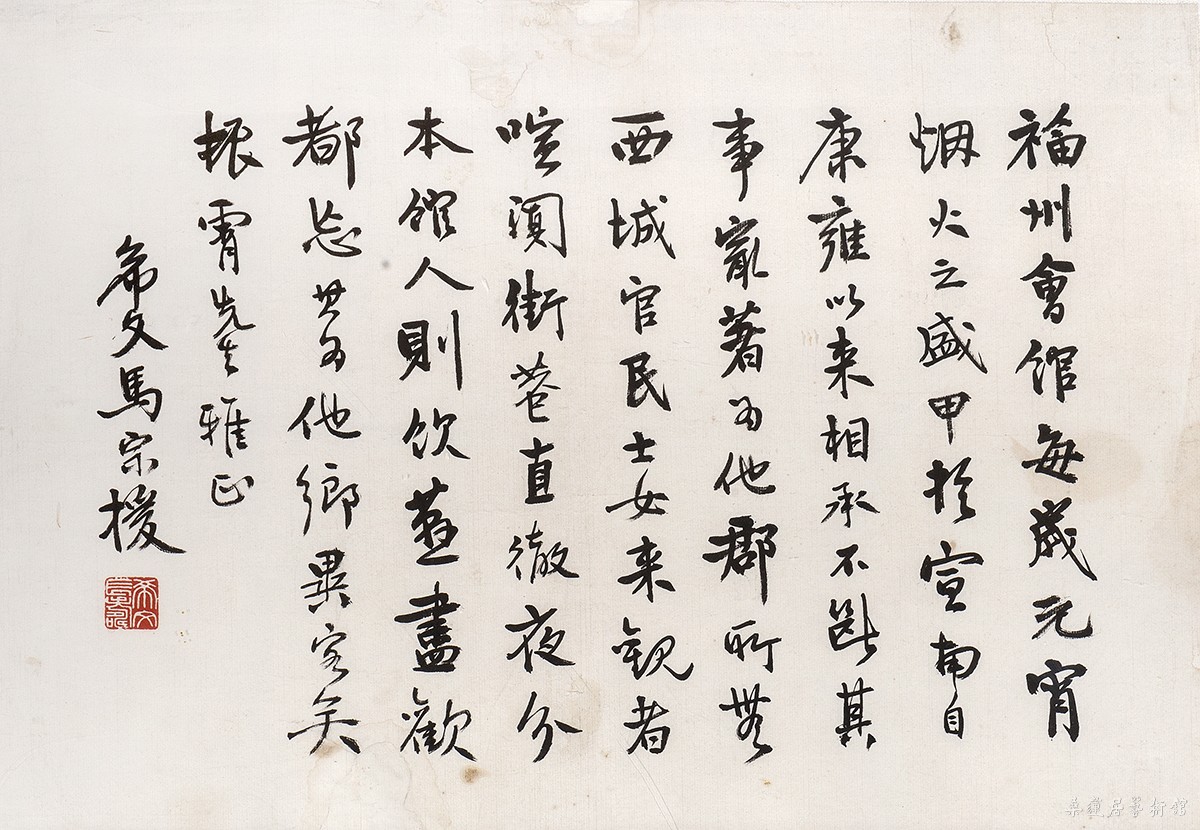 福州會館每歲元宵
烟火之盛甲於宣南自
康雍以来相承不斷其
事㝡著为他郡所無
西城官民士女来觀者
喧闐街巷直徹夜分
本館人則飲燕盡歡
都忘其为他鄉異客矣
振霄先生雅正
希文馬宗援
希文
藝術館